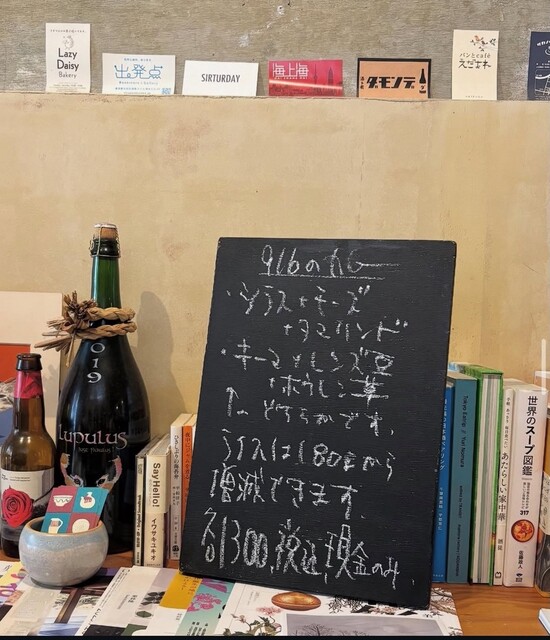 Lazy
Daisy
Bakery
出発点
SIRTURDAY
海上海
ダモンテ
パンとcafé
えだまめ
916のカレー
・シラス+チーズ
+タマリンド
・キーマ+レンズ豆
+ホウレン草
↑ どちらかです。
ライスは180gから
増減できます
各1300,税込,現金のみ,
2019
LUPULUS
Say Hello!
イワサキユキオ
あたらしい家中華
世界のスープ図鑑
317